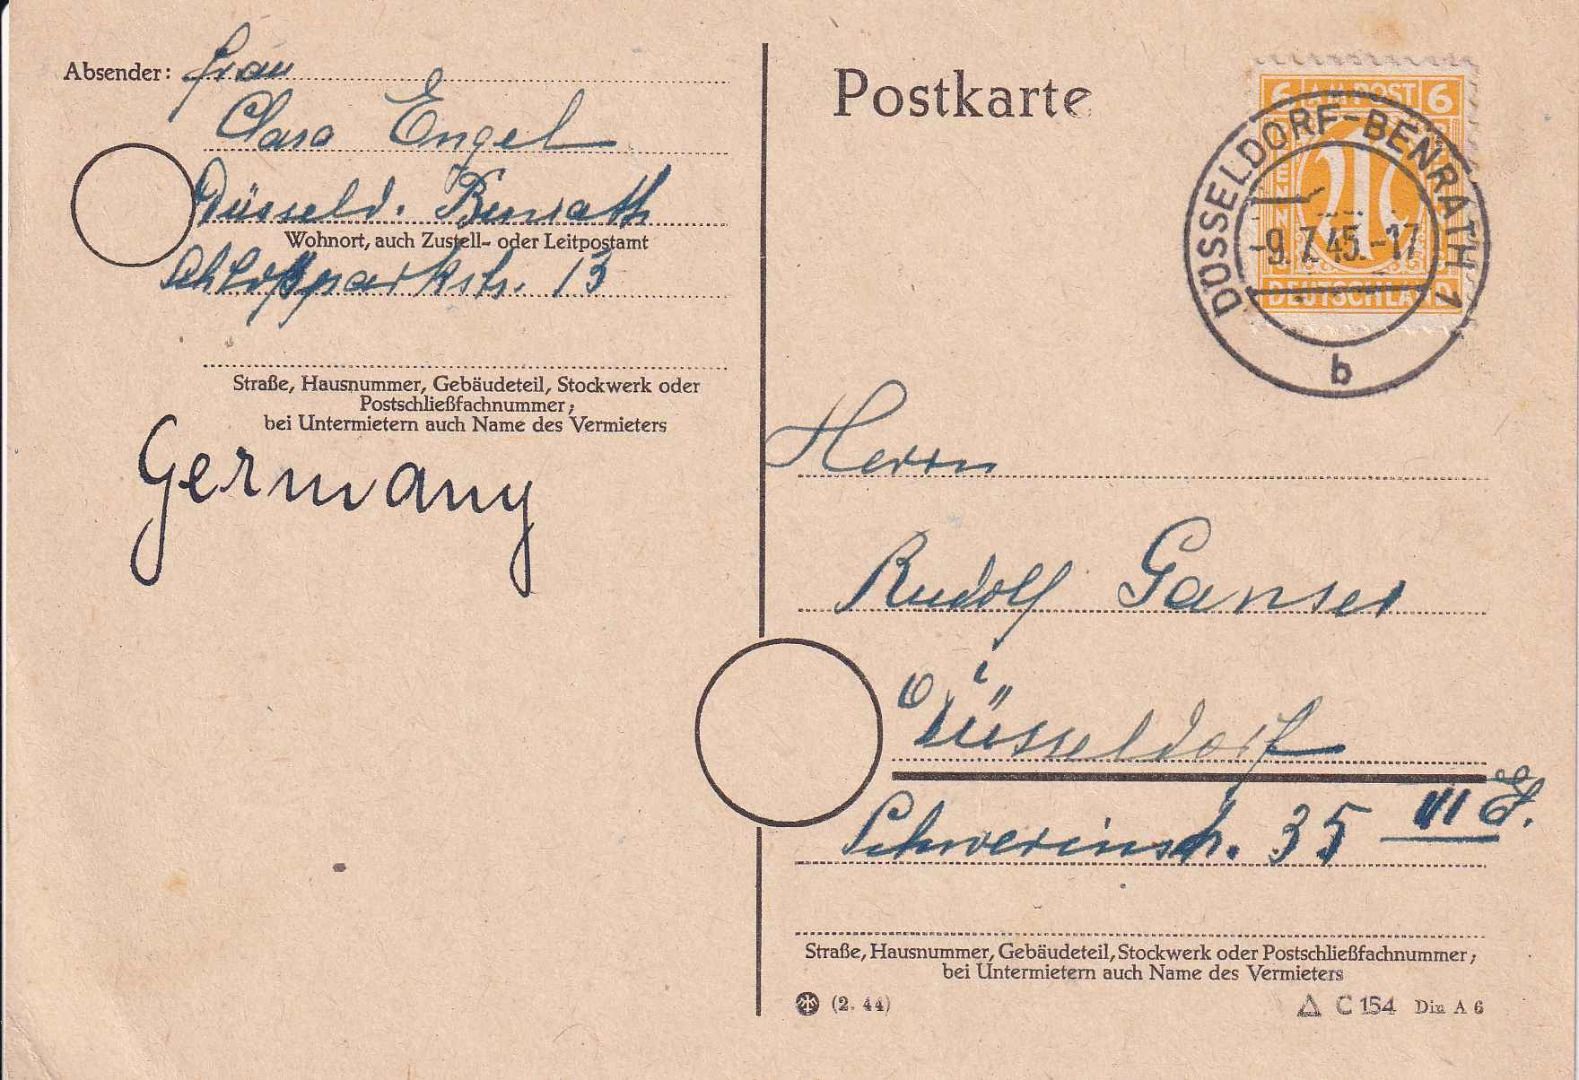 Absender: Frau
Clara Engel
Düsseld. Benrath
Wohnort, auch Zustell- oder Leitpostamt
Schloßparkstr. 13
Straße, Hausnummer, Gebäudeteil, Stockwerk oder
Postschließfachnummer;
bei Untermietern auch Name des Vermieters
Germany
Postkarte
6 AM POST 6
DEUTSCHLAND
DÜSSELDORF-BENRATH 1
-9.7.45.-17
b
Herrn
Rudolf Ganser
Düsseldorf
Schwerinstr. 35 III
Straße, Hausnummer, Gebäudeteil, Stockwerk oder Postschließfachnummer;
bei Untermietern auch Name des Vermieters
(2. 44)
C 154 Din A 6